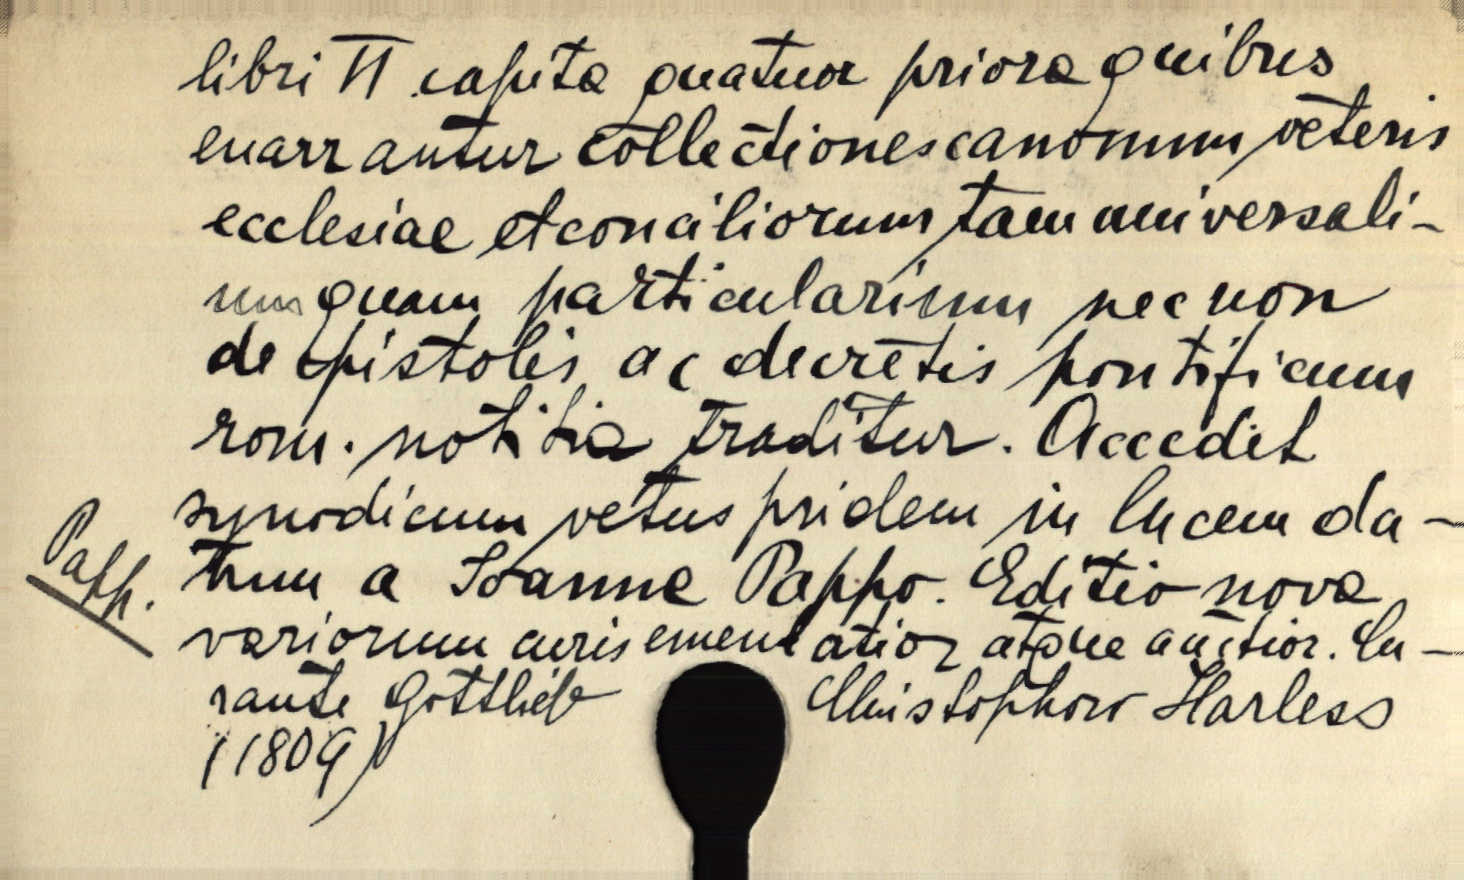 libri VI capita quatuor priora quibus
enarrantur collectiones canonum veteris
ecclesiae et conciliorum tam universali-
um quam particularium nec non
de epistolis ac decretis pontificum
rom. notitia traditur. Accedit
synodicum vetus pridem in lucem da-
Papp. tum a Ioanne Pappo. Editio nova
variorum curis emendatior atque auctior. Cu-
rante Gottlieb Christophoro Harless
(1809)